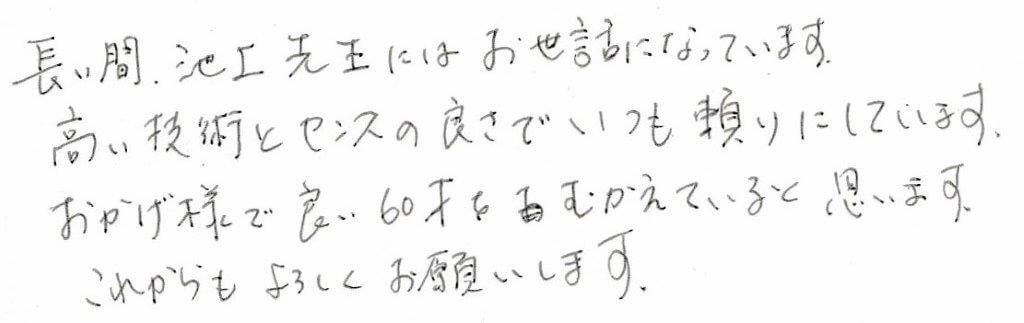 長い間、池上先生にはお世話になっています。
高い技術とセンスの良さでいつも頼りにしています。
おかげ様で良い60才をむかえていると思います。
これからもよろしくお願いします。